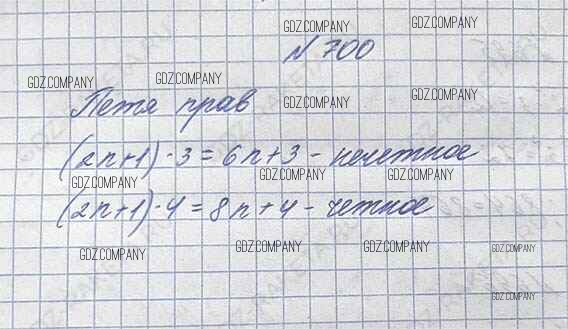 GDZ.COMPANY GDZ.COMPANY
№ 700
GDZ.COMPANY GDZ.COMPANY
Петя прав GDZ.COMPANY GDZ.COMPANY
(2n+1)·3=6n+3 - нечетное
GDZ.COMPANY GDZ.COMPANY GDZ.COMPANY
(2n+1)·4=8n+4 - четное
GDZ.COMPANY GDZ.COMPANY GDZ.COMPANY GDZ.COMPANY
GDZ.COMPANY